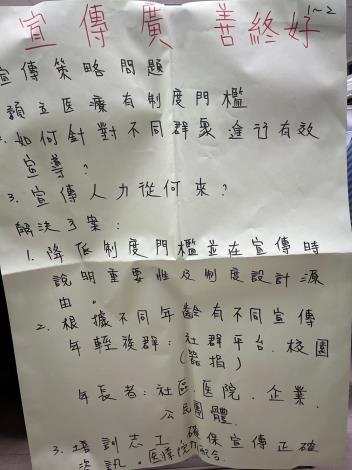 1~2
宣傳廣 善終好
宣傳策略問題
預立医療有制度門檻
2. 如何針對不同群眾進行有效
宣導?
3. 宣傳人力從何來?
解決方案:
1. 降低制度門檻並在宣傳時
說明重要性及制度設計源
由。
2. 根據不同年齡有不同宣傳
年輕族群:社群平台.校園
年長者:社區.医院.企業.
公民團體.
3. 培訓志工,確保宣傳正確
資訊。医療院所配合.